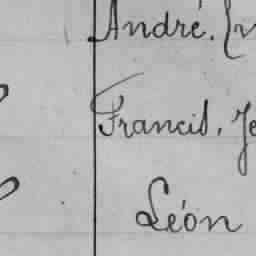 André.
Francis, Je
Léon